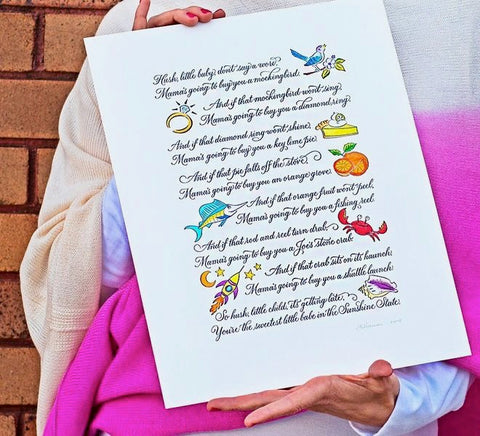 Hush, little baby, don't say a word.
Mama's going to buy you a mockingbird.
And if that mockingbird won't sing
Mama's going to buy you a diamond ring.
And if that diamond ring won't shine
Mama's going to buy you a key lime pie.
And if that pie falls off the stove
Mama's going to buy you an orange grove.
And if that orange fruit won't peel,
Mama's going to buy you a fishing reel.
And if that rod and reel turn drab,
Mama's going to buy you a Joe's stone crab.
And if that crab sits on its haunch,
Mama's going to buy you a shuttle launch.
So hush, little child, it's getting late,
You're the sweetest little babe in the Sunshine State.